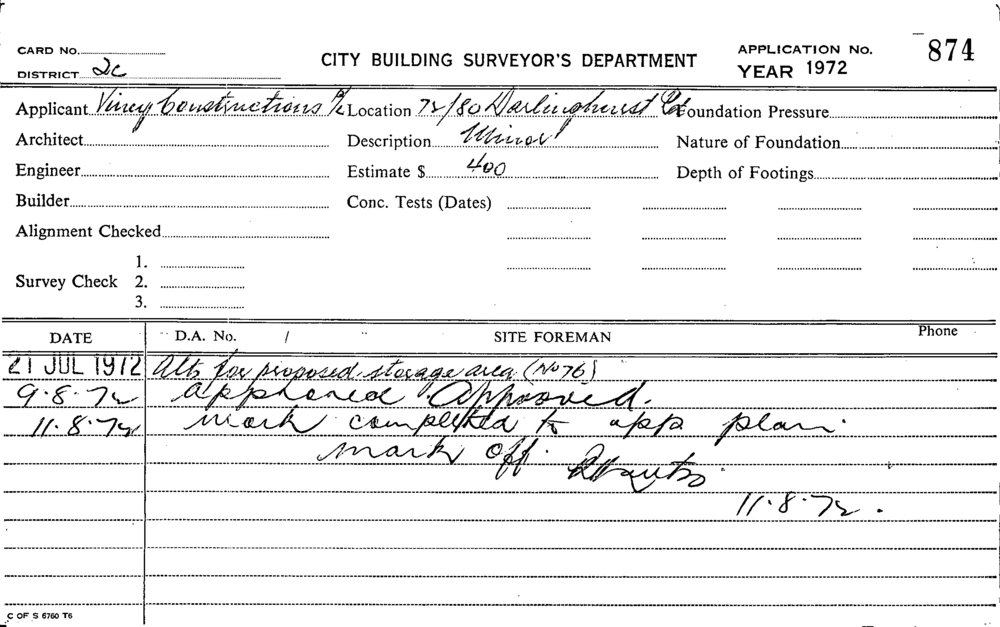 CARD No.
DISTRICT 2c
CITY BUILDING SURVEYOR'S DEPARTMENT
APPLICATION No. 874
YEAR 1972
Applicant Viney Constructions P/L Location 72/80 Darlinghurst Rd Foundation Pressure
Architect Description Minor Nature of Foundation
Engineer Estimate $ 400 Depth of Footings
Builder Conc. Tests (Dates)
Alignment Checked
1.
Survey Check 2.
3.
DATE D.A. No. / SITE FOREMAN Phone
21 JUL 1972 Alts for proposed storage area (No 76)
9.8.72 Approved.
11.8.72 work completed to app plan.
mark off.
11.8.72.
C OF S 6760 T6